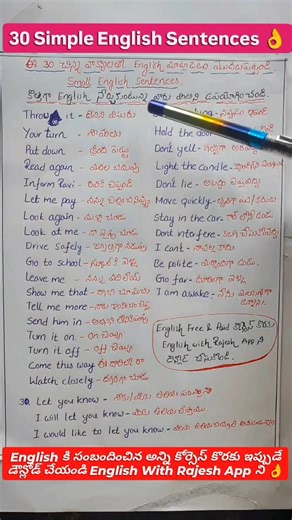 30 Simple English Sentences 👌
ఈ 30 చిన్న వాక్యాలతో English మాట్లాడటం మొదలుపెట్టండి
Small English Sentences
కొత్తగా English నేర్చుకుంటున్న వారు తప్పక ఉపయోగించండి
Throw it - దానిని విసురు
Your turn - నీ వంతు
Put down - క్రింద పెట్టు
Read again - మరల చదువు
Inform Ravi - రవికి చెప్పండి
Let me pay - నన్ను చెల్లించనివ్వు
Look again - మళ్ళీ చూడు
Look at me - నా వైపు చూడు
Drive safely - జాగ్రత్తగా నడుపు
Go to school - స్కూల్ కి వెళ్ళు
Leave me - నన్ను వదిలేయ్
Show me that - నాకు అది చూపించు
Tell me more - నాకు ఇంకొంచెం చెప్పు
Send him in - అతనిని లోపలికి పంపు
Turn it on - on చెయ్యి
Turn it off - off చెయ్యి
Come this way - ఈ దారిలో రా
Watch closely - దగ్గరగా చూడు
Hold the door
Don't yell - గట్టిగా అరవకు
Light the candle
Don't lie - అబద్ధం చెప్పవద్దు
Move quickly - త్వరగా
Stay in the car - కార్ లోనే ఉండు
Don't interfere - జోక్యం చేసుకోవద్దు
I can't - నావల్ల కాదు
Be polite - మర్యాదగా ఉండు
Go far - దూరంగా వెళ్ళు
I am awake - నేను మేలుకునే ఉన్నాను
English Free & Paid కోర్సెస్ కొరకు
English with Rajesh App ని
డౌన్లోడ్ చేసుకోండి.
30. Let you know
I will let you know
I would like to let you know
English కి సంబందించిన అన్ని కోర్సెస్ కొరకు ఇప్పుడే
డౌన్లోడ్ చేయండి English With Rajesh App ని 👌